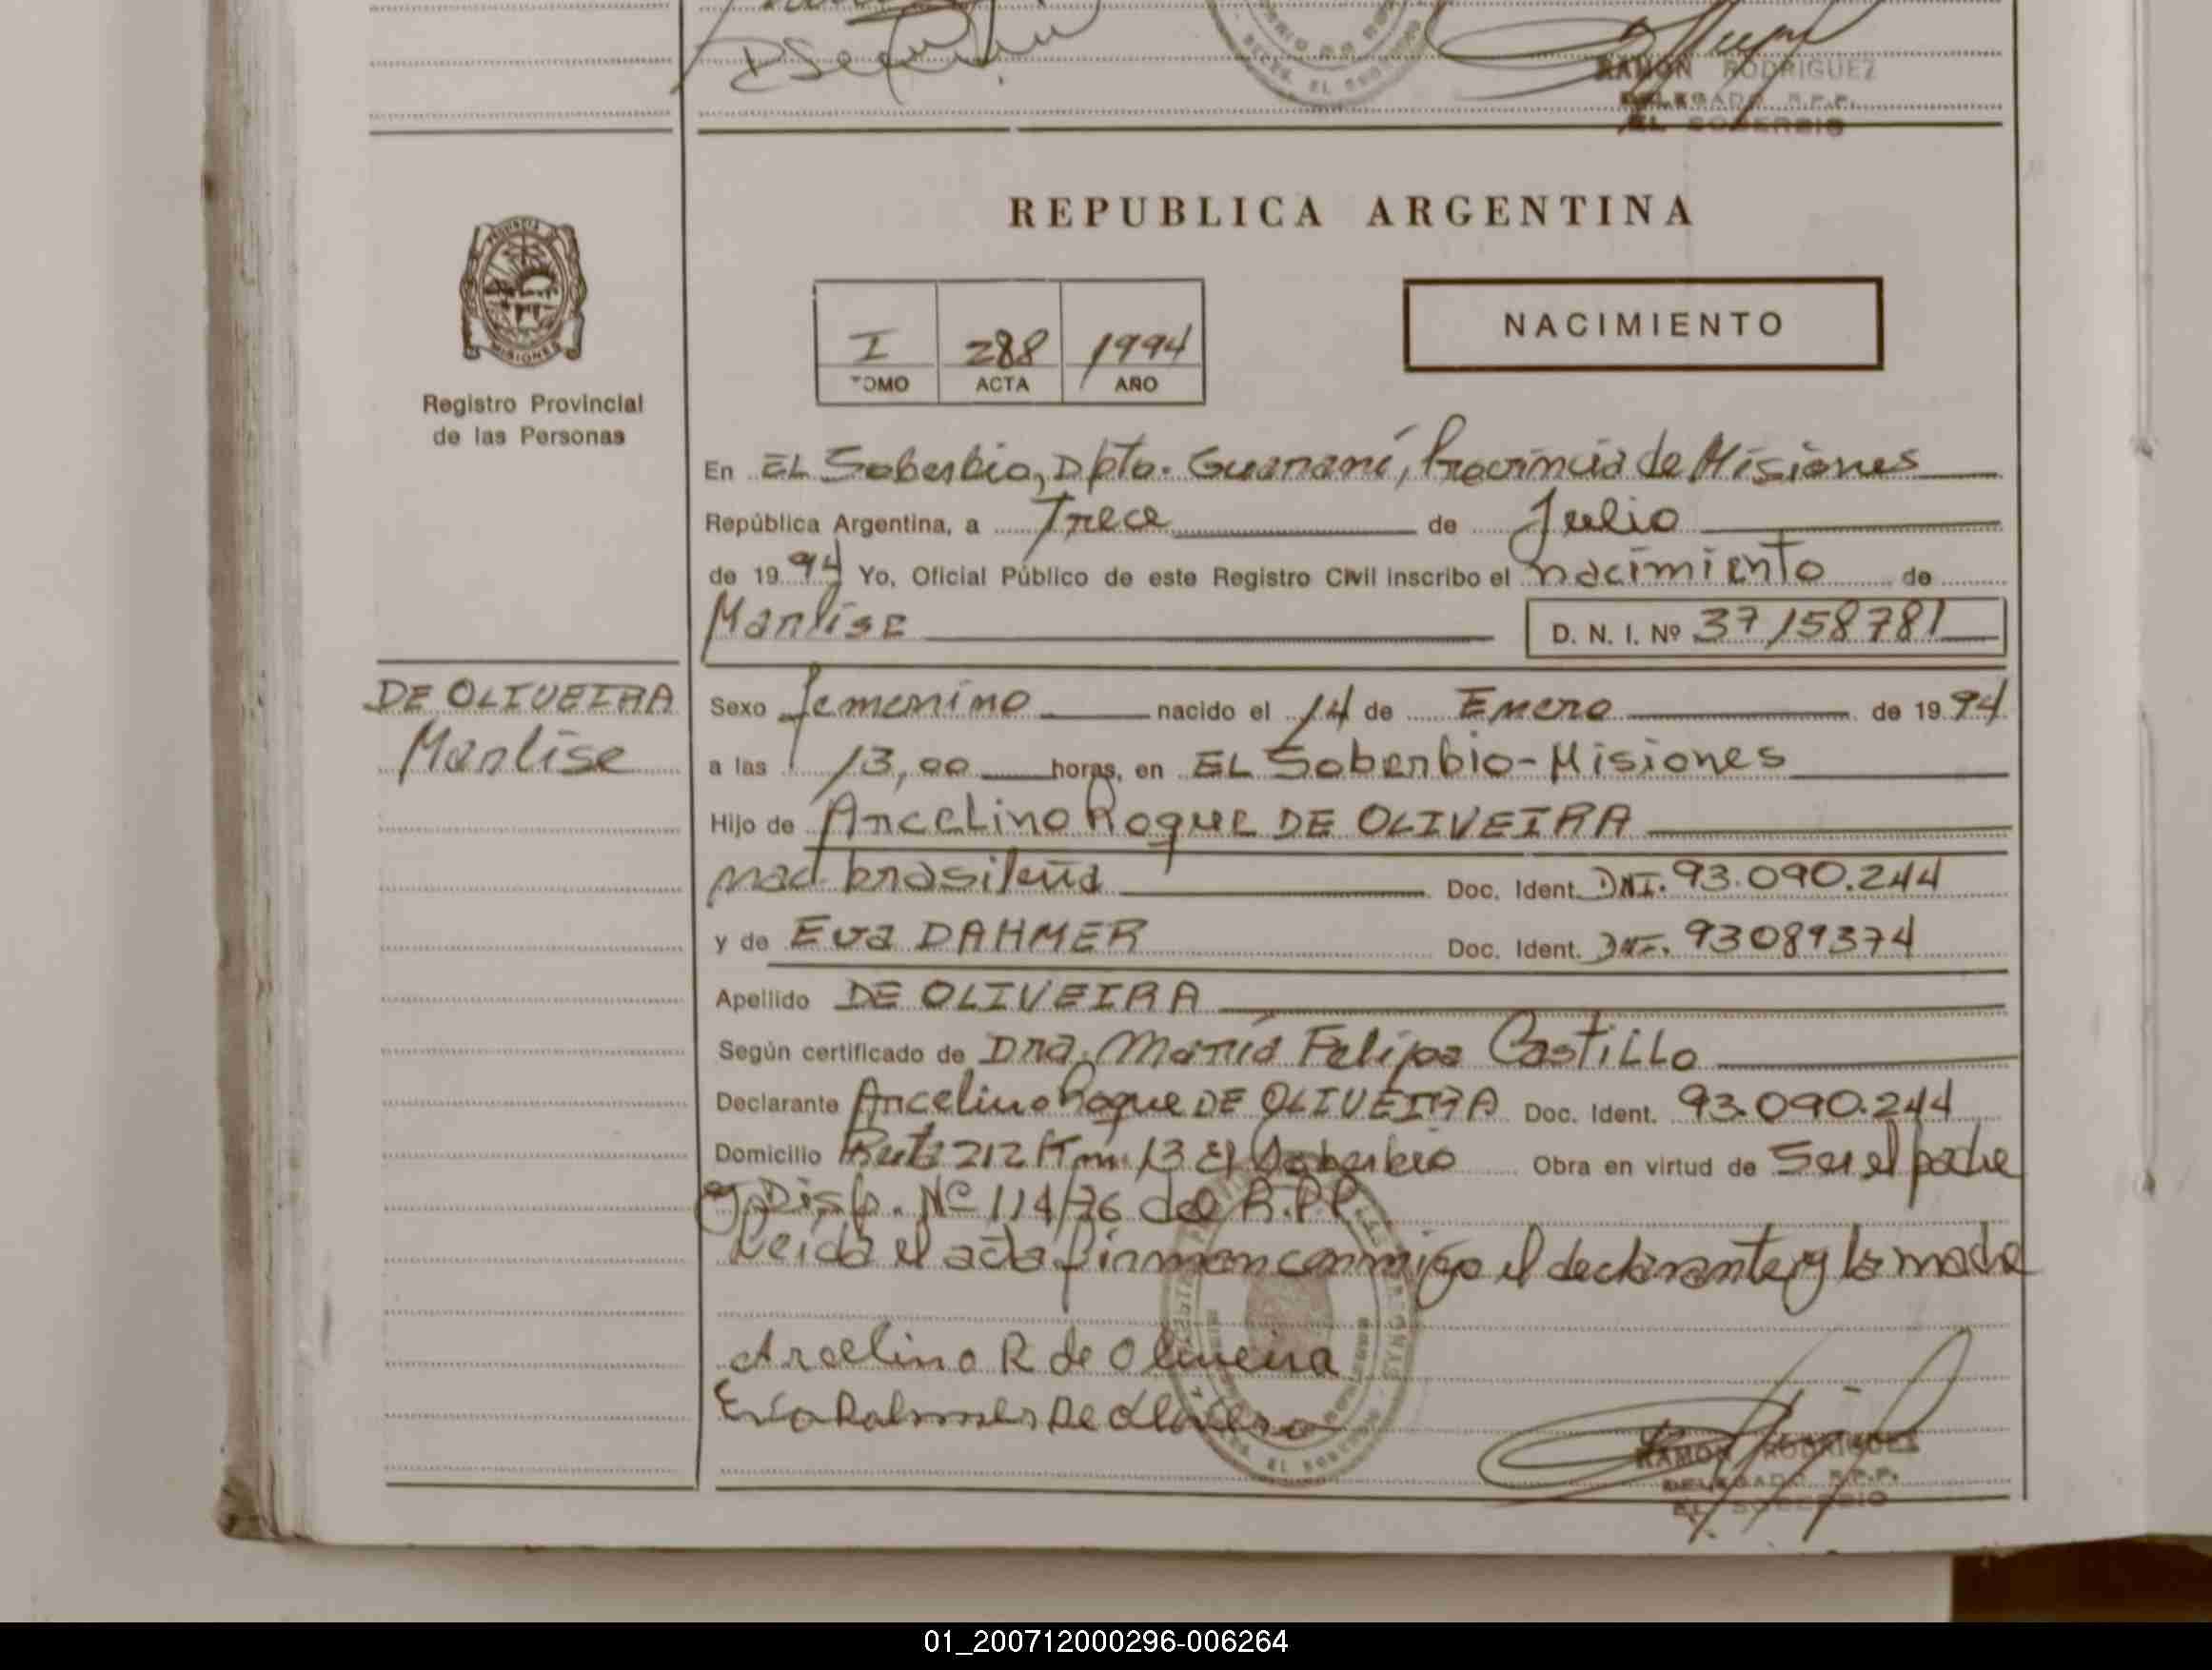 RAMON RODRIGUEZ
DELEGADO R.P.P.
EL SOBERBIO
REPUBLICA ARGENTINA
PROVINCIA DE
MISIONES
Registro Provincial
de las Personas
I 288 1994
TOMO ACTA AÑO
NACIMIENTO
En EL Soberbio, Dpto. Guaraní, Provincia de Misiones
República Argentina, a Trece de Julio
de 1994 Yo, Oficial Público de este Registro Civil inscribo el nacimiento de
Marlise D. N. I. Nº 37158781
DE OLIVEIRA
Marlise
Sexo femenino nacido el 14 de Enero de 1994
a las 13,00 horas, en EL Soberbio-Misiones
Hijo de Arcelino Roque DE OLIVEIRA
nac brasileña Doc. Ident. DNI. 93.090.244
y de Eva DAHMER Doc. Ident. DNI. 93089374
Apellido DE OLIVEIRA
Según certificado de Dra. María Felipa Castillo
Declarante Arcelino Roque DE OLIVEIRA Doc. Ident. 93.090.244
Domicilio Ruta 212 Km 13 El Soberbio Obra en virtud de Ser el padre
y Disp. Nº 114/76 del R.P.P.
Leida el acta firman conmigo el declarante y la madre
Arcelino R de Oliveira
RAMON RODRIGUEZ
DELEGADO R.P.P.
EL SOBERBIO
01_200712000296-006264